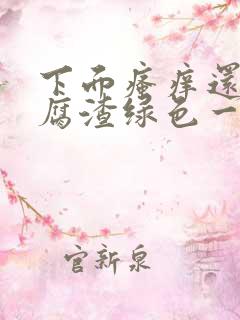 下面瘙痒還
腐渣绿色一
官新泉